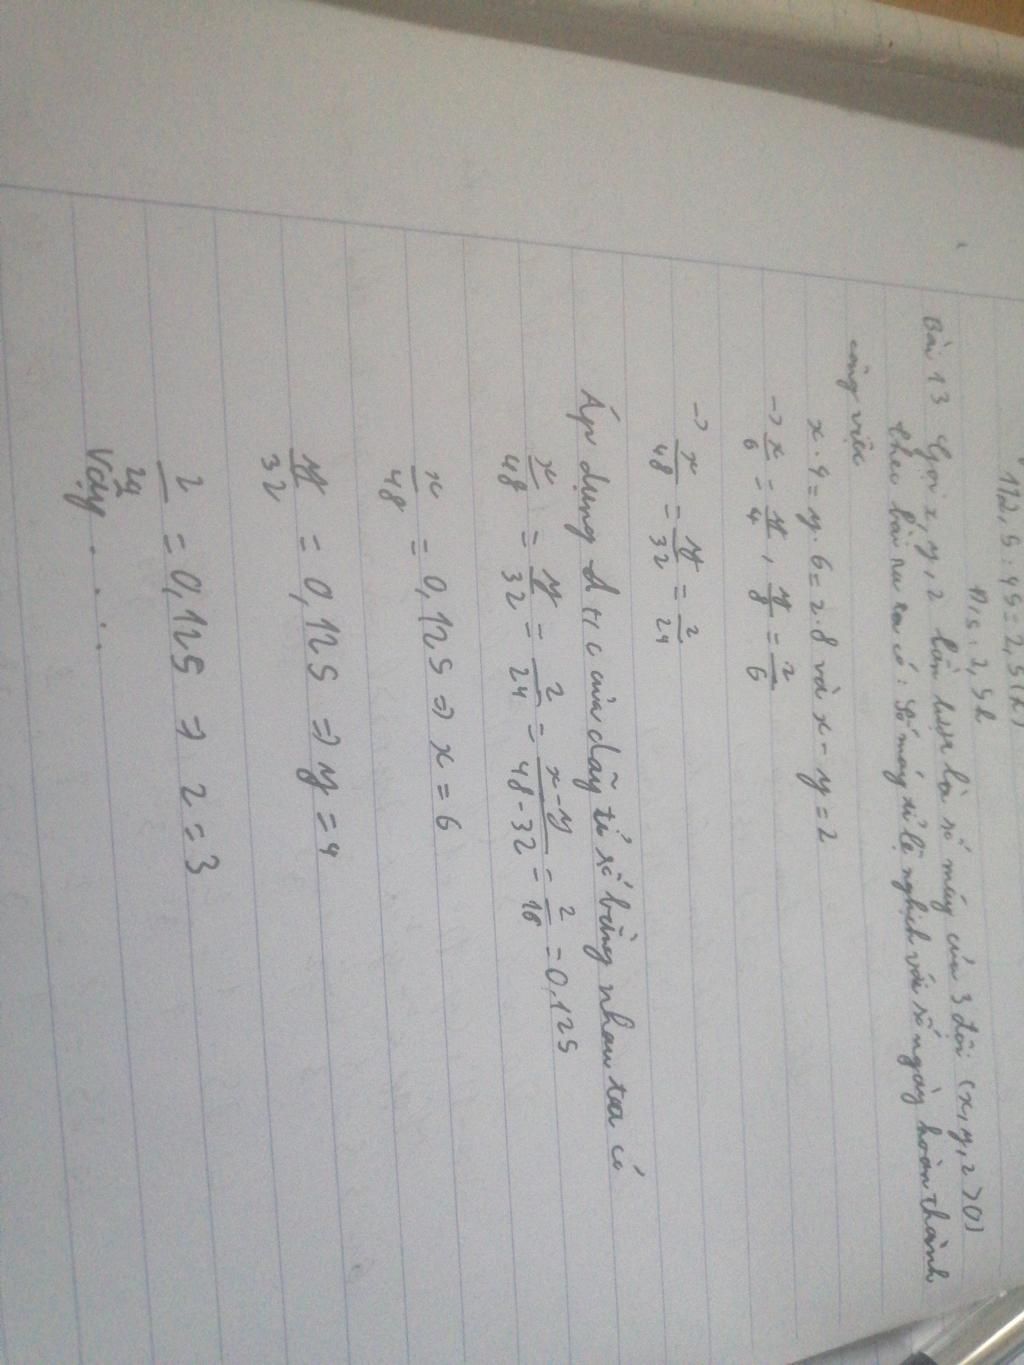 112,5 : 45 = 2,5 (h)
Đ/s : 2,5h
Bài 13 Gọi x, y, z lần lượt là số máy của 3 đội (x, y, z > 0)
theo bài ra ta có : Số máy tỉ lệ nghịch với số ngày hoàn thành
công việc
x . 4 = y . 6 = z . 8 và x - y = 2
-> x/6 = y/4 , y/8 = z/6
-> x/48 = y/32 = z/24
Áp dụng t/c của dãy tỉ số bằng nhau ta có
x/48 = y/32 = z/24 = x-y/48-32 = 2/16 = 0,125
x/48 = 0,125 => x = 6
y/32 = 0,125 => y = 4
z/24 = 0,125 => z = 3
Vậy . . .